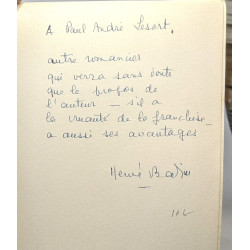 A Paul André Lesort,
autre romancier
qui verra sans doute
que le propos de
l'auteur – s'il a
la cruauté de la franchise –
a aussi ses avantages
Hervé Bazin